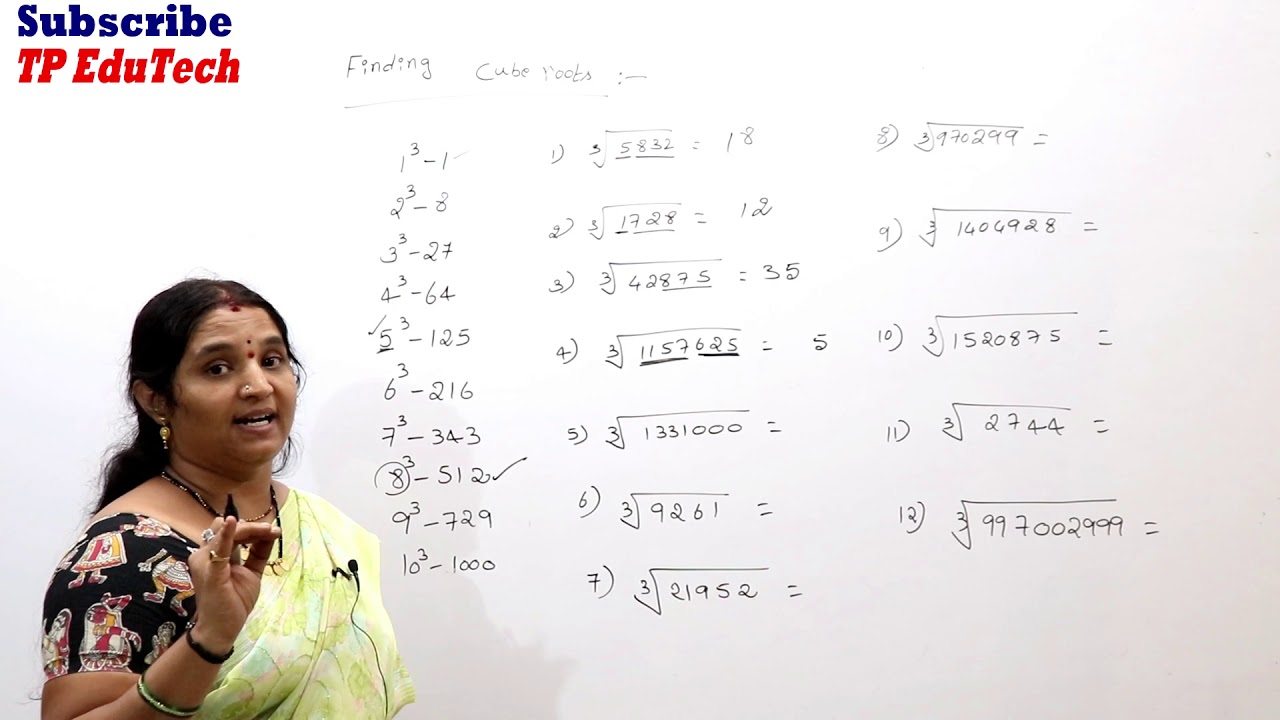 Subscribe
TP EduTech
Finding Cube roots :-
1³ - 1
2³ - 8
3³ - 27
4³ - 64
✓5³ - 125
6³ - 216
7³ - 343
8³ - 512 ✓
9³ - 729
10³ - 1000
1) ∛5832 = 18
2) ∛1728 = 12
3) ∛42875 = 35
4) ∛1157625 = 5
5) ∛1331000 =
6) ∛9261 =
7) ∛21952 =
8) ∛970299 =
9) ∛1404928 =
10) ∛1520875 =
11) ∛2744 =
12) ∛997002999 =